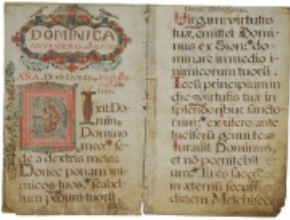 DOMINICA
AD VESPERAS
AÑA. Dixit Dominus.
Dixit Do-
min,
Domino
meo: se-
de a dextris meis:
Donec ponam ini-
micos tuos, scabel-
lum pedum tuorũ.
Virgam virtutis
tuæ, emittet Domi-
nus ex Sion: do-
minare in medio i-
nimicorum tuorũ.
Tecũ principium in
die virtutis tuæ in
splendoribus sancto-
rum: ex utero ante
luciferũ genui te.
Iuravit Dominus,
et nõ poenitebit
eum: Tu es sacer-
in æternũ secun-
dum Melchisec